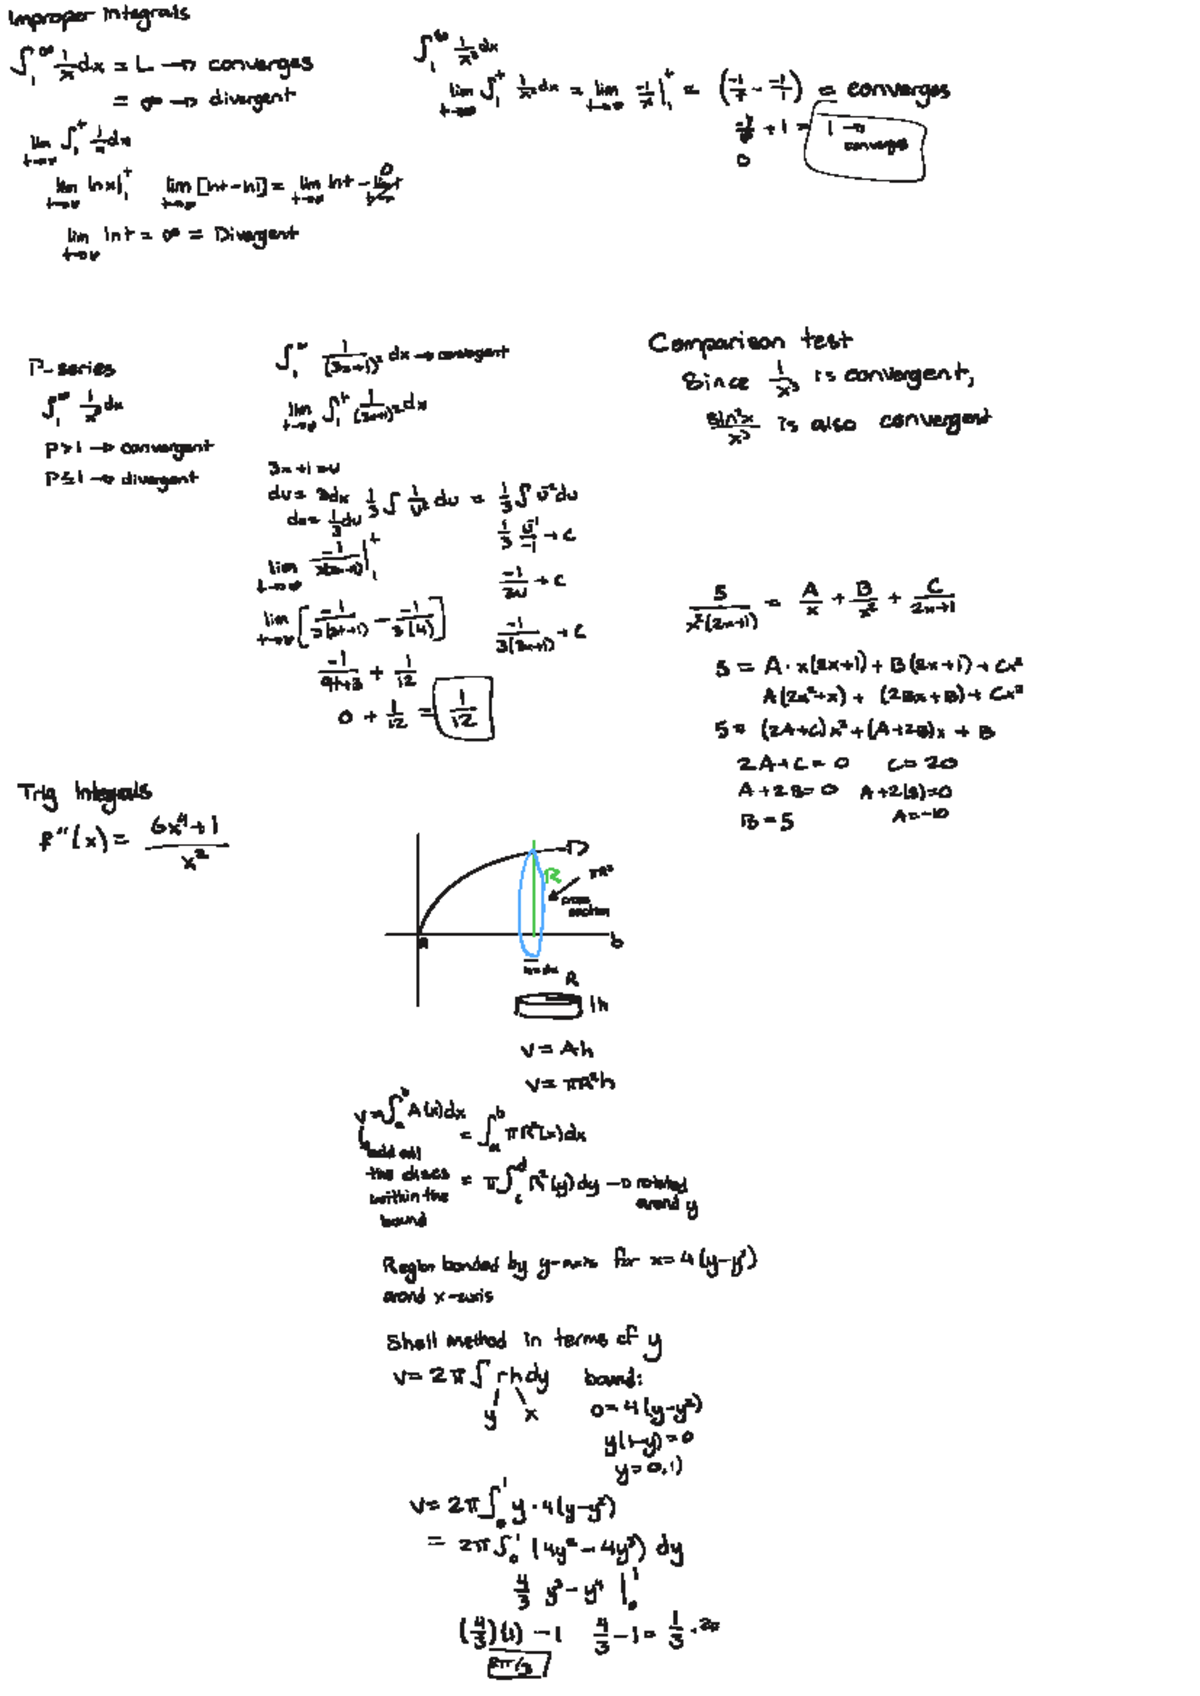 Improper Integrals
∫₁^∞ 1/x dx = L → converges
= ∞ → divergent
lim t→∞ ∫₁^t 1/x dx
lim t→∞ ln x |₁^t   lim t→∞ [ln t - ln 1] = lim t→∞ ln t -
0
lim t→∞ ln t = ∞ = Divergent
∫₁^∞ 1/x² dx
lim t→∞ ∫₁^t 1/x² dx = lim t→∞ -1/x |₁^t = (-1/t - -1/1) = converges
+ 1 = 1 → converges
0
P-series
∫₁^∞ 1/x^p dx
P > 1 → convergent
P ≤ 1 → divergent
∫₁^∞ 1/(3x+1)² dx → convergent
lim t→∞ ∫₁^t 1/(3x+1)² dx
3x+1 = u
du = 3dx   1/3 ∫ 1/u² du = 1/3 ∫ u⁻² du
dx = 1/3 du   1/3 u⁻¹/-1 + C
lim t→∞ -1/3(3x+1) |₁^t   -1/3u + C
lim t→∞ [-1/3(3t+1) - -1/3(4)]   -1/3(3x+1) + C
-1/9t+3 + 1/12
0 + 1/12 = 1/12
Comparison test
Since 1/x³ is convergent,
sin²x/x³ is also convergent
5/x²(2x+1) = A/x + B/x² + C/2x+1
5 = A · x(2x+1) + B(2x+1) + Cx²
A(2x²+x) + (2Bx+B) + Cx²
5 = (2A+C)x² + (A+2B)x + B
2A+C = 0   C = 20
A+2B = 0   A+2(5)=0
B = 5   A=-10
Trig Integrals
f''(x) = 6x⁴+1/x²
R   πR²
cross section
a   b
h=dx
R
h
V = Ah
V = πR²h
V = ∫ₐ^b A(x)dx = ∫ₐ^b πR²(x)dx
add all
the discs = π∫_c^d R²(y)dy → rotated
within the   around y
bound
Region bonded by y-axis for x = 4(y-y²)
around x-axis
Shell method in terms of y
V = 2π ∫ rh dy   bound:
y   x   0=4(y-y²)
y(1-y)=0
y=0,1)
V = 2π ∫₀¹ y · 4(y-y²)
= 2π ∫₀¹ (4y² - 4y³) dy
4/3 y³ - y⁴ |₀¹
(4/3)(1) - 1   4/3 - 1 = 1/3 · 2π
2π/3